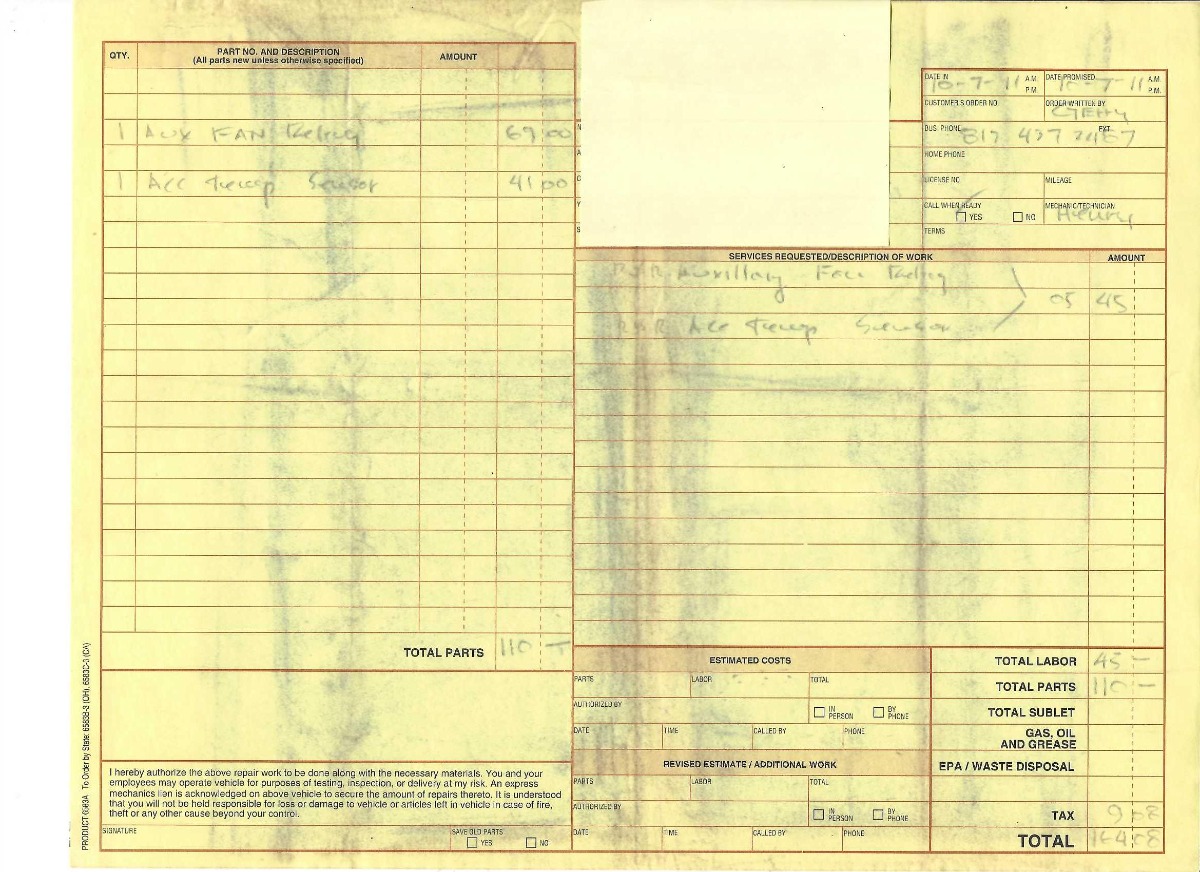 QTY. PART NO. AND DESCRIPTION AMOUNT
(All parts new unless otherwise specified)
1 AUX FAN Relay 69 00
1 Acc Temp Sensor 41 00
TOTAL PARTS 110 —
I hereby authorize the above repair work to be done along with the necessary materials. You and your
employees may operate vehicle for purposes of testing, inspection, or delivery at my risk. An express
mechanics lien is acknowledged on above vehicle to secure the amount of repairs thereto. It is understood
that you will not be held responsible for loss or damage to vehicle or articles left in vehicle in case of fire,
theft or any other cause beyond your control.
SIGNATURE SAVE OLD PARTS
YES NO
PRODUCT 6583A To Order by State: 6583B-3 (OH), 6583C-3 (CA)
DATE IN 10-7-11 A.M. P.M. DATE PROMISED 10-7-11 A.M. P.M.
CUSTOMER'S ORDER NO. ORDER WRITTEN BY Gerry
BUS. PHONE 817 437 EXT.
HOME PHONE
LICENSE NO. MILEAGE
CALL WHEN READY YES NO MECHANIC/TECHNICIAN Henry
TERMS
SERVICES REQUESTED/DESCRIPTION OF WORK AMOUNT
R & R Auxillary Fan Relay
05 45
R & R Acc Temp Sensor
ESTIMATED COSTS
PARTS LABOR TOTAL
AUTHORIZED BY IN PERSON BY PHONE
DATE TIME CALLED BY PHONE
REVISED ESTIMATE / ADDITIONAL WORK
PARTS LABOR TOTAL
AUTHORIZED BY IN PERSON BY PHONE
DATE TIME CALLED BY PHONE
TOTAL LABOR 45 —
TOTAL PARTS 110 —
TOTAL SUBLET
GAS, OIL
AND GREASE
EPA / WASTE DISPOSAL
TAX 9 08
TOTAL 164 08